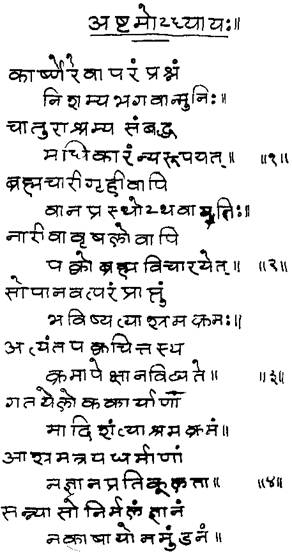 अष्टमोऽध्यायः॥
कार्ष्णेरेवापरं प्रश्नं
निशम्यभगवान्मुनिः॥
चातुराश्रम्य संबद्ध
मधिकारंन्यरूपयत्॥ ॥१॥
ब्रह्मचारीगृहीवापि
वानप्रस्थोऽथवा यतिः॥
नारीवावृषलोवापि
पक्वो ब्रह्मविचारयेत्॥ ॥२॥
सोपानवत्परंप्राप्तुं
भविष्यत्याश्रमक्रमः॥
अत्यंतपक्वचित्तस्य
क्रमापेक्षानविद्यते॥ ॥३॥
गतयेलोककार्याणां
मादिशंत्याश्रमक्रमं॥
आश्रमत्रयधर्माणां
नज्ञानप्रतिकूलता॥ ॥४॥
सन्न्यासो निर्मलंज्ञानं
नकाषायोनमुंडनं॥